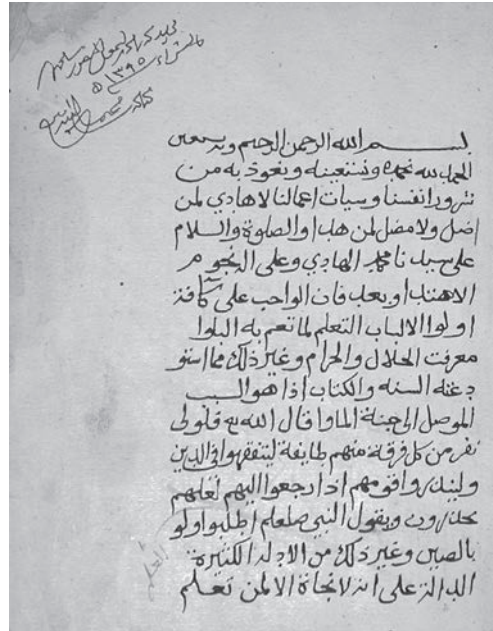 ١٣٩٥
بسم الله الرحمن الرحيم وبه نستعين
الحمد لله نحمده ونستعينه ونعوذ به من
شرور انفسنا وسيات اعمالنا لا هادي لمن
اضل ولا مضل لمن هدا والصلوة والسلام
على سيدنا محمد الهادي وعلى اله نجوم
الاهتدا وبعد فان الواجب على كافة
اولوا الالباب التعلم لما تعم به البلوا
معرفت الحلال والحرام وغير ذلك مما استو
دعته السنه والكتاب اذا هو السبب
الموصل الى جنة الماوا قال الله تع فلولى
نفر من كل فرقة منهم طايفة ليتفقهوا في الدين
ولينذروا قومهم اذا رجعوا اليهم لعلهم
يحذرون ويقول النبي صلعلم اطلبوا ولو
العلم
بالصين وغير ذلك من الادلة الكثيرة
الدالة على انه لا نجاة الا لمن تعلم